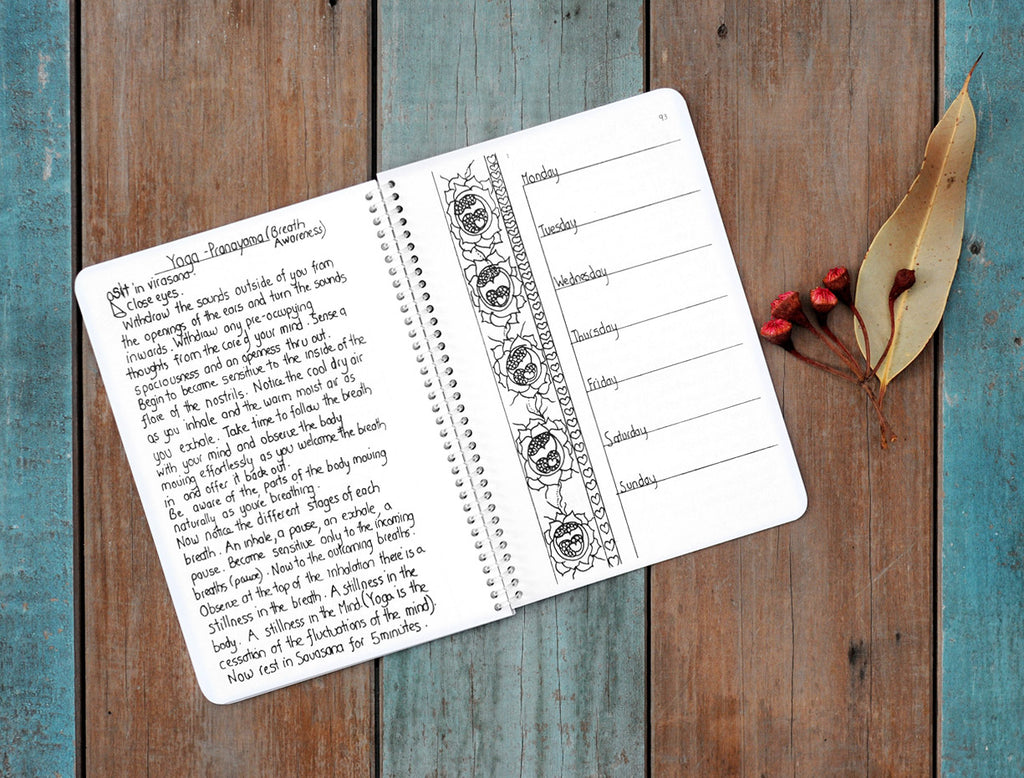 Yoga - Pranayama (Breath
Awareness)
Sit in virasana.
Close eyes.
Withdraw the sounds outside of you from
the openings of the ears and turn the sounds
inwards. Withdraw any pre-occupying
thoughts from the core of your mind. Sense a
spaciousness and an openness thru out.
Begin to become sensitive to the inside of the
flare of the nostrils. Notice the cool dry air
as you inhale and the warm moist air as
you exhale. Take time to follow the breath
with your mind and observe the body
moving effortlessly as you welcome the breath
in and offer it back out.
Be aware of the, parts of the body moving
naturally as you're breathing.
Now notice the different stages of each
breath. An inhale, a pause, an exhale, a
pause. Become sensitive only to the incoming
breaths (pause). Now to the outcoming breaths.
Observe at the top of the inhalation there is a
stillness in the breath. A stillness in the
body. A stillness in the Mind (Yoga is the
cessation of the fluctuations of the mind).
Now rest in Savasana for 5 minutes.
93
Monday
Tuesday
Wednesday
Thursday
Friday
Saturday
Sunday